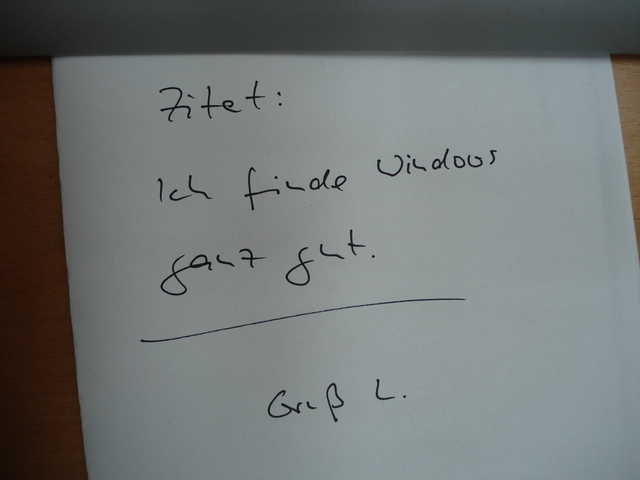 Zitat:
Ich finde Windows
ganz gut.
Gruß L.